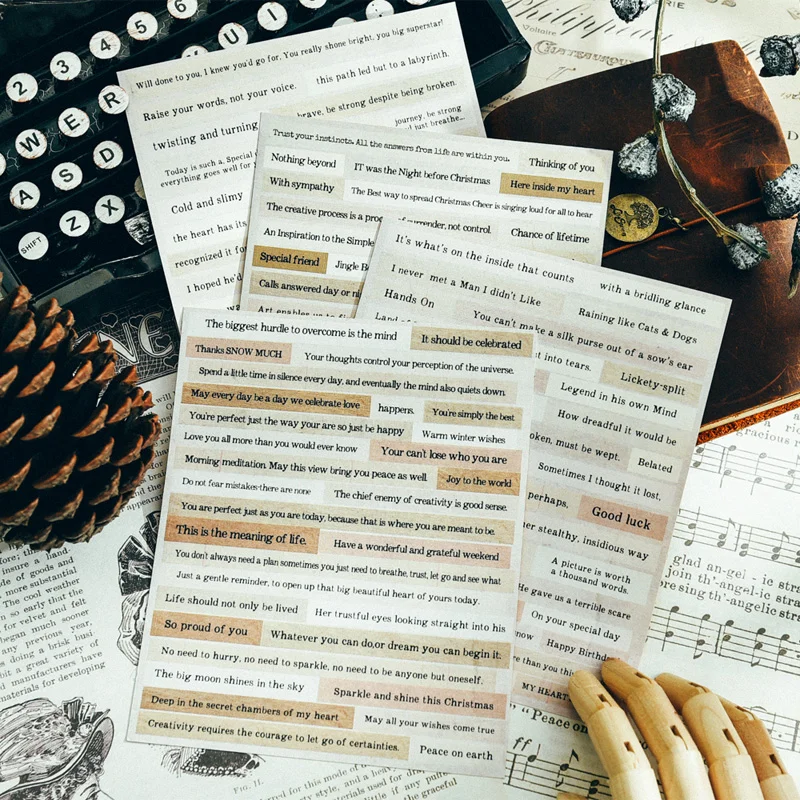 2 3 4 5 6
W E R U I
A S D
SHIFT Z X
Philippe
Voltaire
Will done to you, I knew you'd go for. You really shone bright, you big superstar!
Raise your words, not your voice. this path led but to a labyrinth.
twisting and turning brave, be strong despite being broken.
journey, be strong
just breathe...
Today is such a. Special
everything goes well for
Cold and slimy
the heart has its
recognized it for
I hoped he'd
Trust your instincts. All the answers from life are within you.
Nothing beyond IT was the Night before Christmas Thinking of you
With sympathy The Best way to spread Christmas Cheer is singing loud for all to hear Here inside my heart
The creative process is a surrender, not control Chance of lifetime
An Inspiration to the Simple
Special friend Jingle B
Calls answered day or ni
Art enables us to fi
It's what's on the inside that counts with a bridling glance
I never met a Man I didn't Like Raining like Cats & Dogs
Hands On You can't make a silk purse out of a sow's ear
into tears. Lickety-split
Legend in his own Mind
How dreadful it would be
oken, must be wept. Belated
Sometimes I thought it lost,
perhaps, Good luck
er stealthy, insidious way
A picture is worth
a thousand words.
He gave us a terrible scare
On your special day
now Happy Birthd
re than you this
MY HEART
The biggest hurdle to overcome is the mind It should be celebrated
Thanks SNOW MUCH Your thoughts control your perception of the universe.
Spend a little time in silence every day, and eventually the mind also quiets down.
May every day be a day we celebrate love happens. You're simply the best
You're perfect just the way your are so just be happy Warm winter wishes
Love you all more than you would ever know Your can't lose who you are
Morning meditation. May this view bring you peace as well. Joy to the world
Do not fear mistakes-there are none The chief enemy of creativity is good sense.
You are perfect just as you are today, because that is where you are meant to be.
This is the meaning of life. Have a wonderful and grateful weekend
You don't always need a plan sometimes you just need to breathe, trust, let go and see what
Just a gentle reminder, to open up that big beautiful heart of yours today.
Life should not only be lived Her trustful eyes looking straight into his
So proud of you Whatever you can do,or dream you can begin it:
No need to hurry, no need to sparkle, no need to be anyone but oneself.
The big moon shines in the sky Sparkle and shine this Christmas
Deep in the secret chambers of my heart May all your wishes come true
Creativity requires the courage to let go of certainties. Peace on earth
glad an-gel - ic stra
join th'-angel-ic stra
sing th'-angelic stra
"Peace on
ff
FIG. 11.